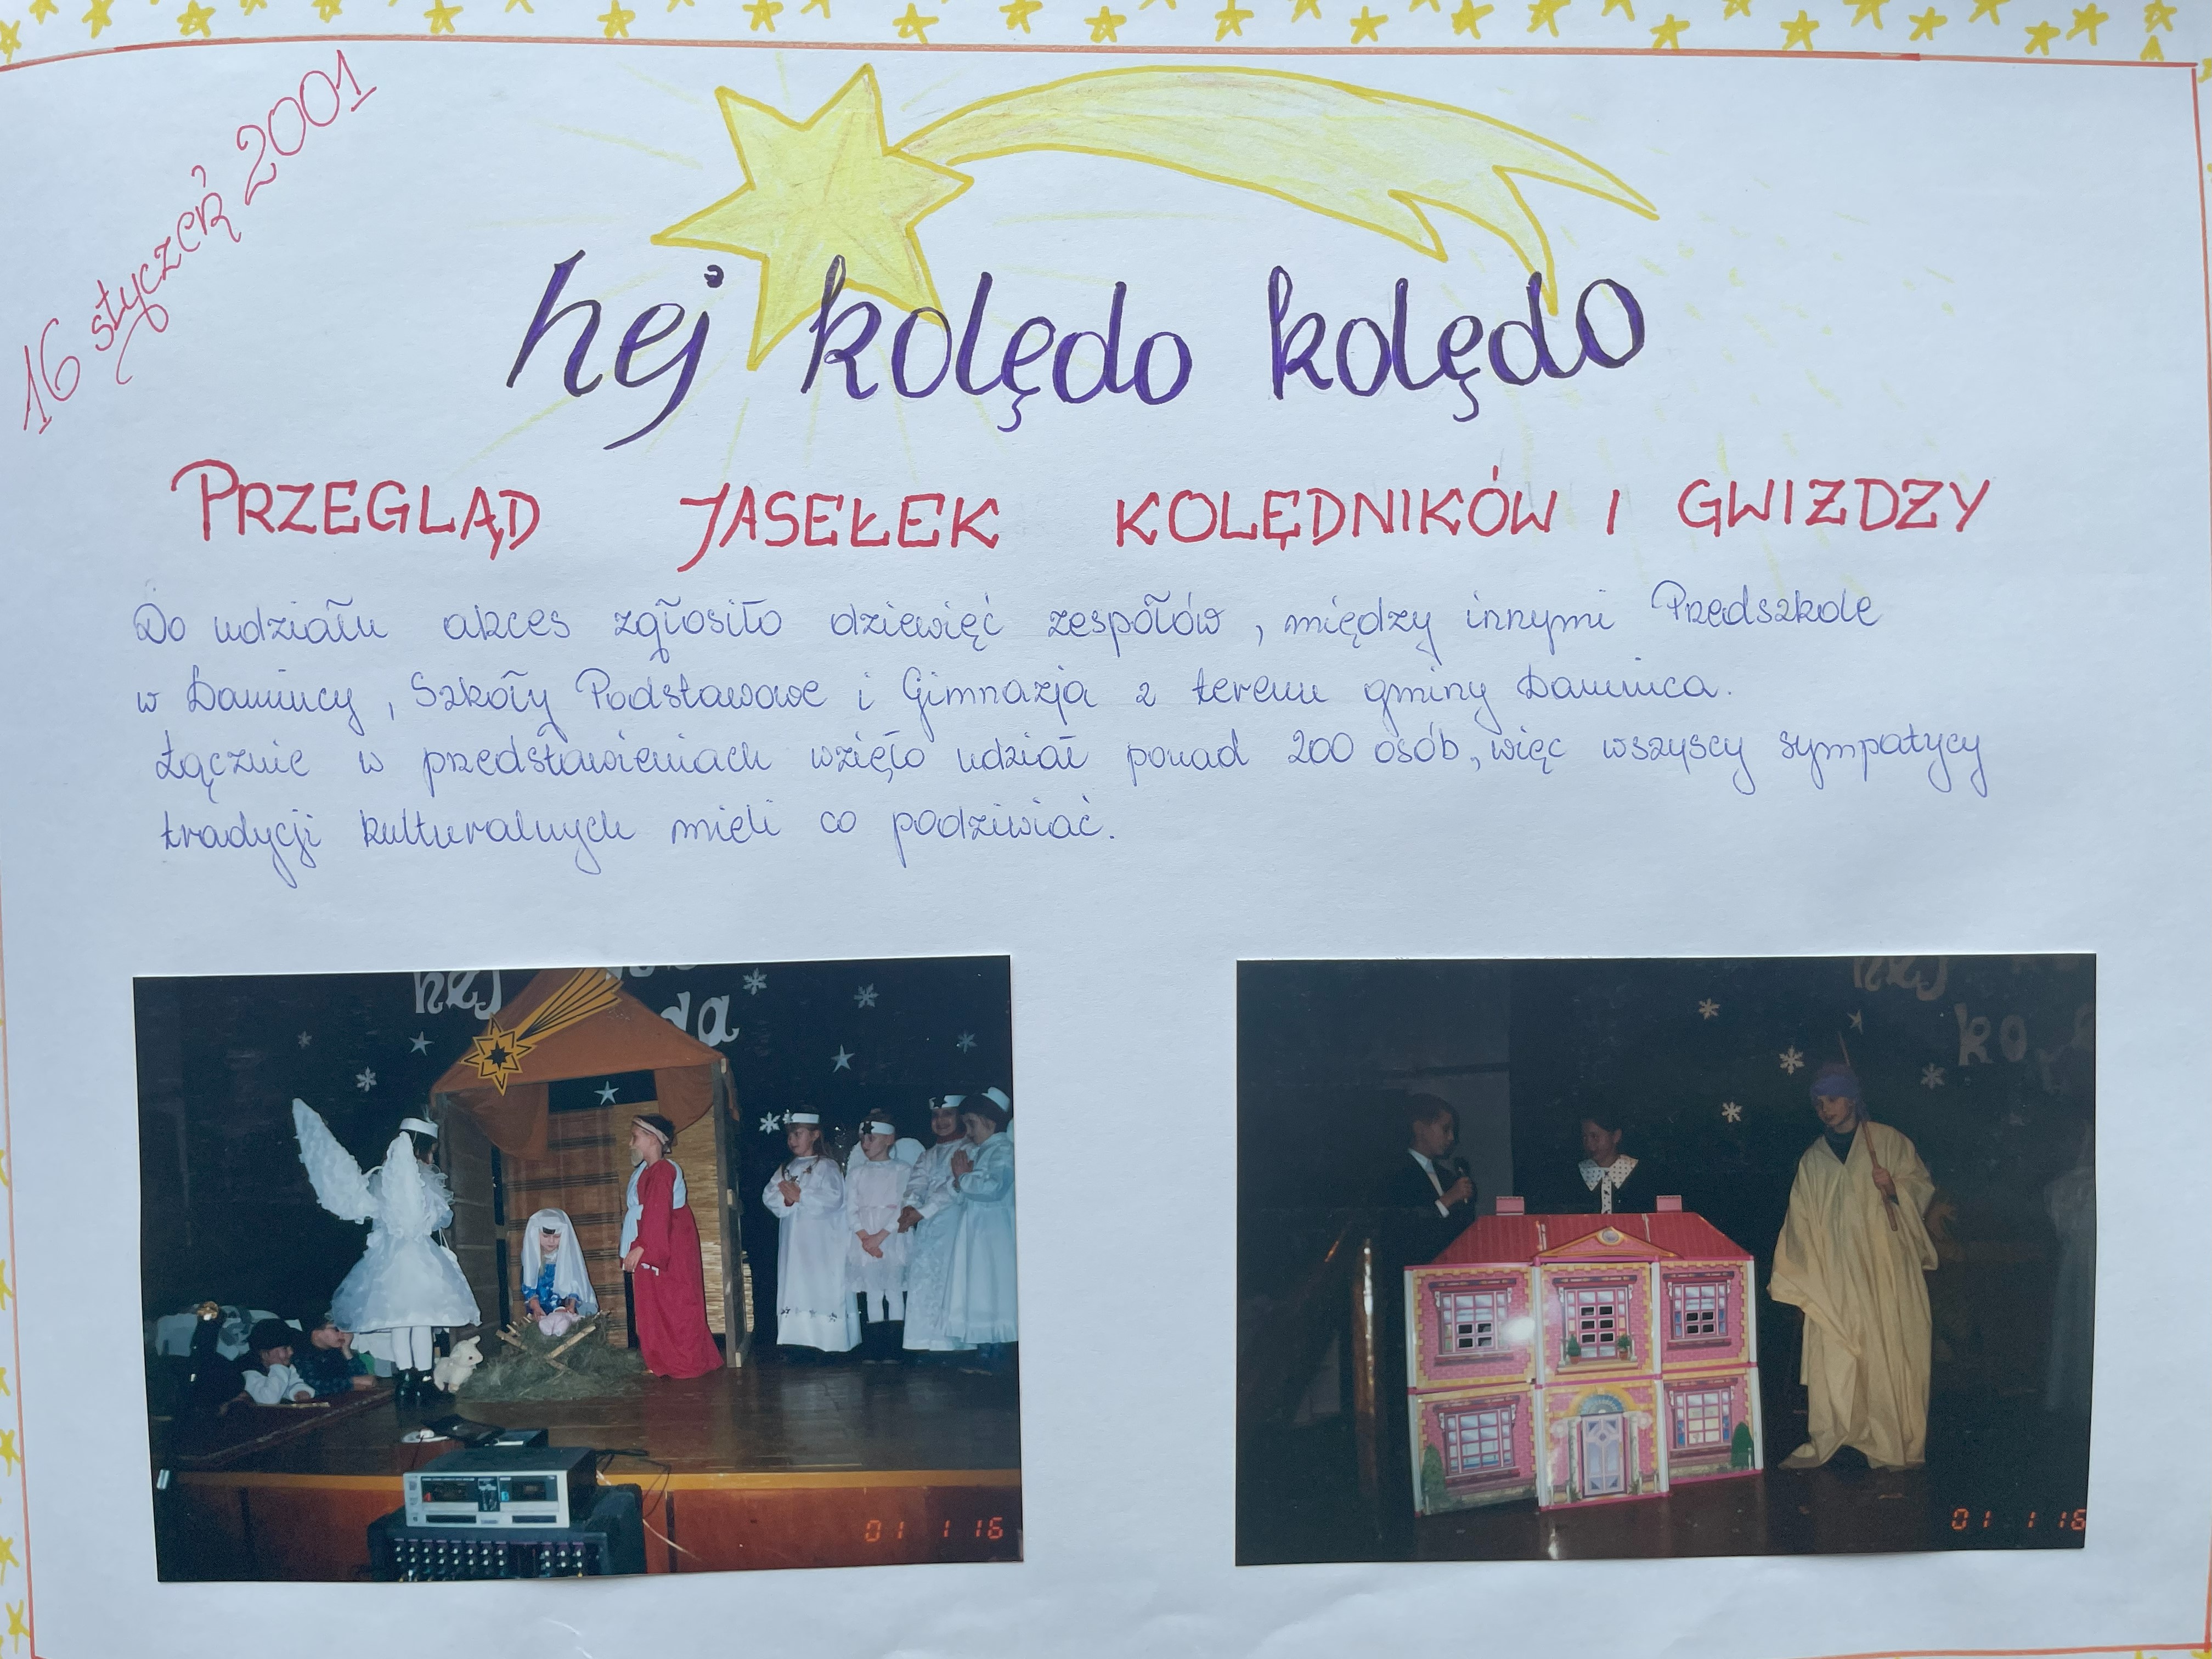 16 styczeń 2001
hej kolędo kolędo
PRZEGLĄD JASEŁEK KOLĘDNIKÓW I GWIZDZY
Do udziału akces zgłosiło dziewięć zespołów, między innymi Przedszkole
w Damnicy, Szkoły Podstawowe i Gimnazja z terenu gminy Damnica.
Łącznie w przedstawieniach wzięło udział ponad 200 osób, więc wszyscy sympatycy
tradycji kulturalnych mieli co podziwiać.
hej
da
01 1 16
hej
ko
01 1 16